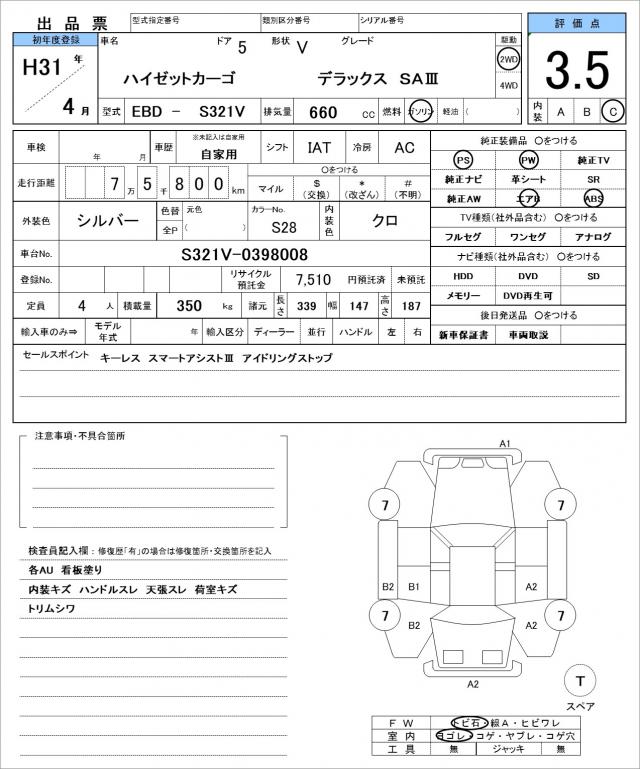 出品票 型式指定番号 類別区分番号 シリアル番号 評価点
初年度登録 車名 ドア 5 形状 V グレード 駆動
H31 年 ハイゼットカーゴ デラックス SAⅢ 2WD 3.5
4WD
4 月 型式 EBD － S321V 排気量 660 cc 燃料 ガソリン 軽油 ( ) 内装 A B C
車検 年 月 車歴 ※未記入は自家用 自家用 シフト IAT 冷房 AC 純正装備品 〇をつける
PS PW 純正TV
走行距離 7 万 5 千 8 0 0 km 〇をつける
マイル $ (交換) * (改ざん) # (不明) 純正ナビ 革シート SR
純正AW エアB ABS
外装色 シルバー 色替 元色 カラーNo. 内装色 クロ TV種類(社外品含む) 〇をつける
全P ( ) S28 フルセグ ワンセグ アナログ
車台No. S321V-0398008 ナビ種類(社外品含む) 〇をつける
登録No. リサイクル預託金 7,510 円預託済 未預託 HDD DVD SD
定員 4 人 積載量 350 kg 諸元 長さ 339 幅 147 高さ 187 メモリー DVD再生可
後日発送品 〇をつける
輸入車のみ⇒ モデル年式 年 輸入区分 ディーラー 並行 ハンドル 左 右 新車保証書 車両取説
セールスポイント キーレス スマートアシストⅢ アイドリングストップ
注意事項・不具合箇所
A1
7 7
検査員記入欄：修復歴「有」の場合は修復箇所・交換箇所を記入
各AU 看板塗り
内装キズ ハンドルスレ 天張スレ 荷室キズ
B2 B1 A2
トリムシワ
7 B2 A2 7
A2
T
スペア
FW トビ石・線A・ヒビワレ
室内 ヨゴレ・コゲ・ヤブレ・コゲ穴
工具 無 ジャッキ 無